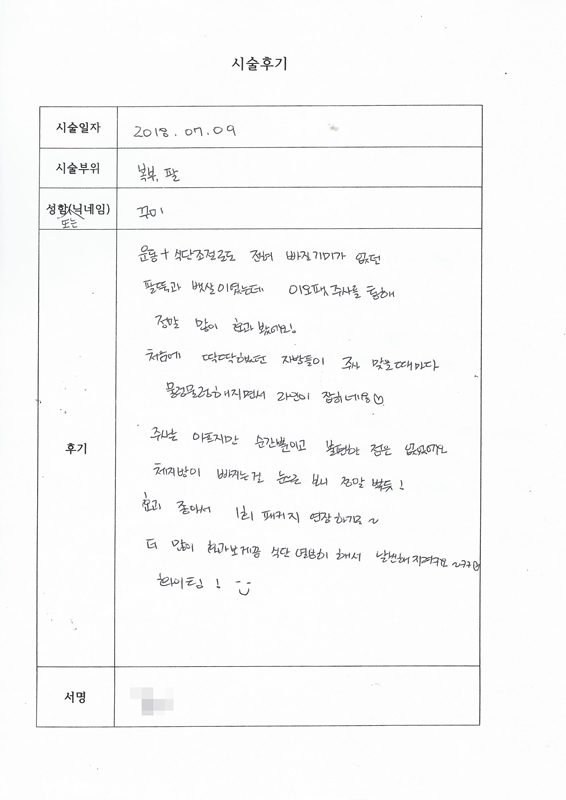 시술후기
시술일자
2018.07.09
시술부위
복부, 팔
성함(닉네임)
또는
꾸미
후기
운동 + 식단조절로도 전혀 빠질기미가 없던
팔뚝과 뱃살이였는데 주사를 통해
정말 많이 효과 봤어요!
처음에 딱딱했던 지방들이 주사 맞을때마다
물렁물렁해지면서 라인이 잡히네용♡
주사는 아프지만 순간뿐이고 불편한 점은 없었어요
체지방이 빠지는걸 눈으로 보니 정말 뿌듯!
효과 좋아서 1회 패키지 연장하기로~
더 많이 효과보게끔 식단 열심히 해서
화이팅!
서명